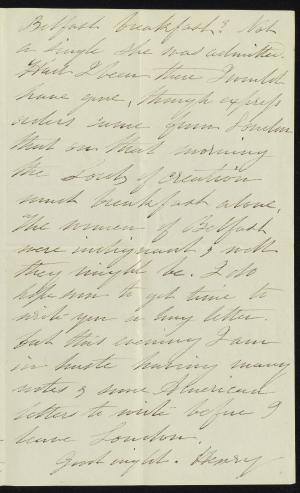 Belfast breakfast? Not
a single she was admitted.
Had I been there I would
have gone, though express
orders came from London
that on that morning
the Lords of creation
must breakfast alone.
The women of Belfast
were indignant & well
they might be. I do
hope soon to get time to
write you a long letter
but this evening I am
in haste having many
notes & some American
letters to write before I
leave London.
Good night. Henry